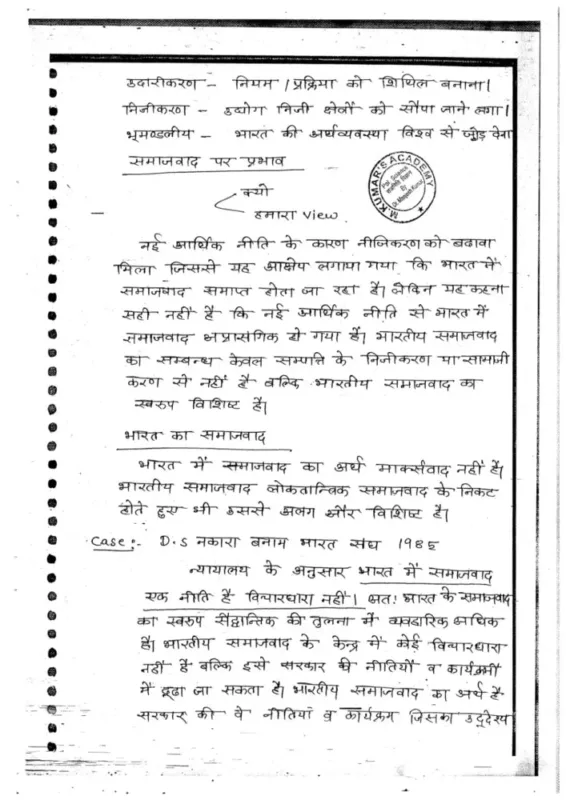 उदारीकरण - नियम / प्रक्रिया को शिथिल बनाना।
निजीकरण - उद्योग निजी क्षेत्रों को सौंपा जाने लगा।
भूमण्डलीय - भारत की अर्थव्यवस्था विश्व से जोड़ देना
समाजवाद पर प्रभाव
क्यों
हमारा view.
M.KUMAR'S ACADEMY
नई आर्थिक नीति के कारण नीजिकरण को बढावा
मिला जिससे यह आक्षेप लगाया गया कि भारत में
समाजवाद समाप्त होता जा रहा है। लेकिन यह कहना
सही नहीं है कि नई आर्थिक नीति से भारत में
समाजवाद अप्रासंगिक हो गया है। भारतीय समाजवाद
का सम्बन्ध केवल सम्पत्ति के निजीकरण या सामाजी
करण से नहीं है बल्कि भारतीय समाजवाद का
स्वरुप विशिष्ट है।
भारत का समाजवाद
भारत में समाजवाद का अर्थ मार्क्सवाद नहीं है।
भारतीय समाजवाद लोकतान्त्रिक समाजवाद के निकट
होते हुए भी उससे अलग और विशिष्ट है।
Case:- D.S नकारा बनाम भारत संघ
न्यायालय के अनुसार भारत में समाजवाद
एक नीति है विचारधारा नहीं। अतः भारत के समाजवाद
का स्वरुप सैद्वान्तिक की तुलना में व्यवहारिक अधिक
है। भारतीय समाजवाद के केन्द्र में कोई विचारधारा
नहीं है बल्कि इसे सरकार की नीतियों व कार्यक्रमों
में ढूढा जा सकता है। भारतीय समाजवाद का अर्थ है
सरकार की वे नीतियां व कार्यक्रम जिसका उद्देश्य